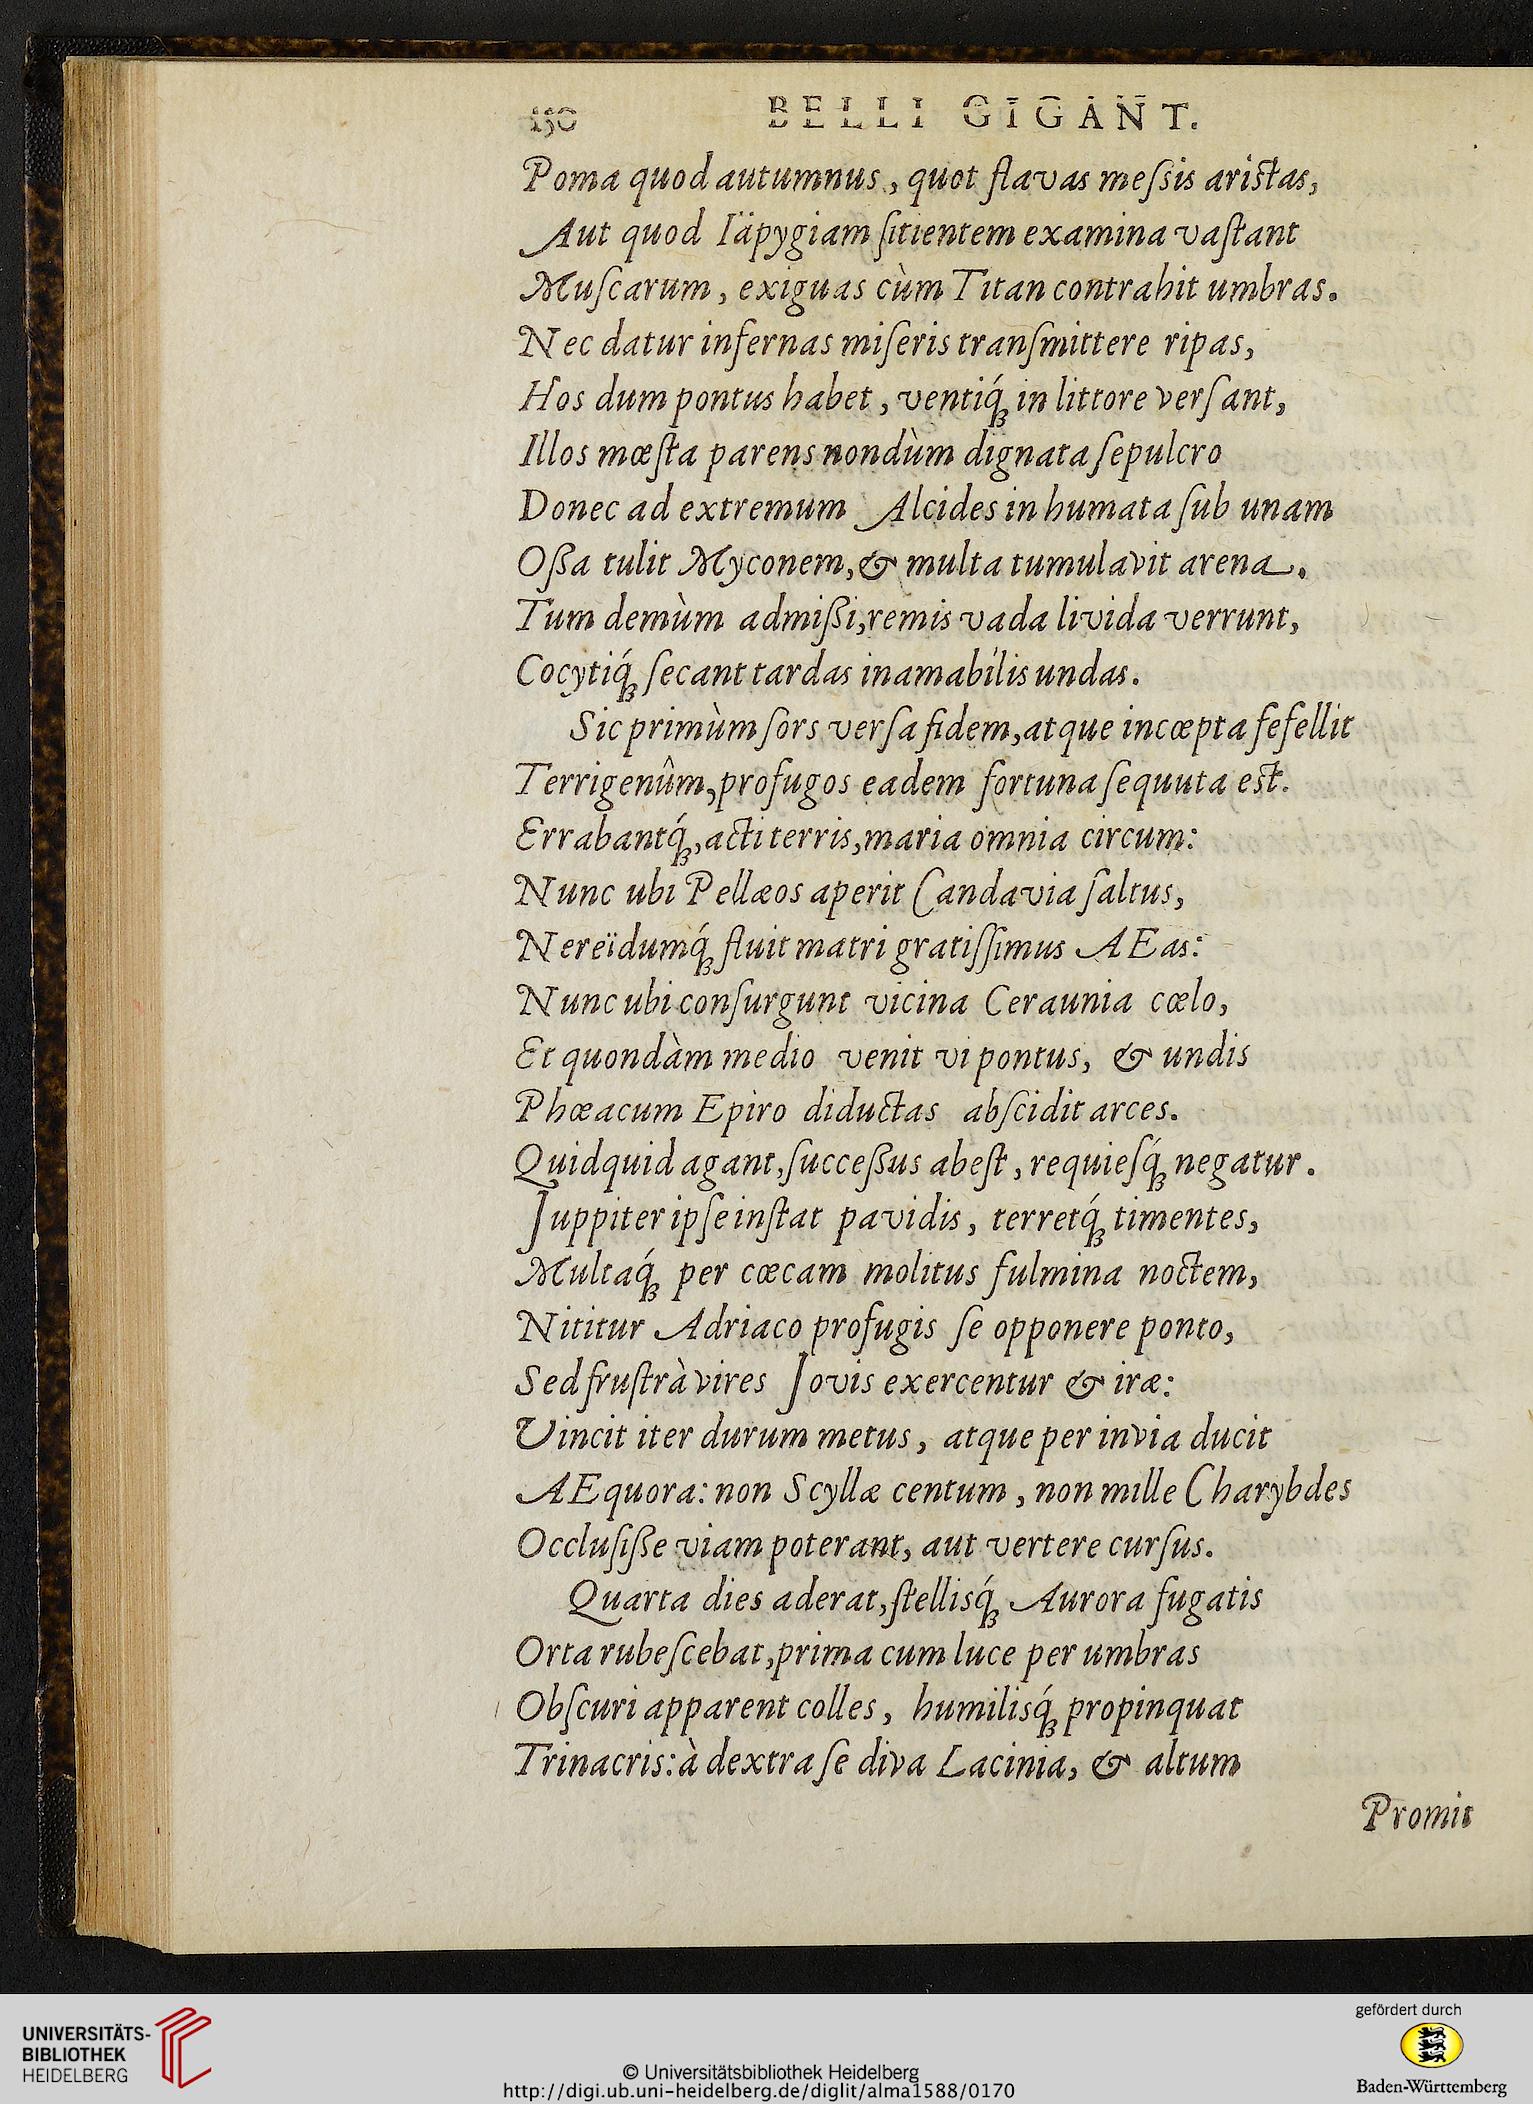 150 BELLI GIGANT.
Poma quod autumnus, quot flavas meſsis ariſtas,
Aut quod Iäpygiam ſitientem examina vaſtant
Muſcarum, exiguas cùm Titan contrahit umbras.
Nec datur infernas miſeris tranſmittere ripas,
Hos dum pontus habet, ventiq́ꝫ in littore verſant,
Illos mœſta parens nondùm dignata ſepulcro
Donec ad extremum Alcides inhumata ſub unam
Oßa tulit Myconem, & multa tumulavit arena.
Tum demùm admißi, remis vada livida verrunt,
Cocytiq́ꝫ ſecant tardas inamabilis undas.
Sic primùm ſors verſa fidem, atque incœpta fefellit
Terrigenûm, profugos eadem fortuna ſequuta eſt.
Errabantq́ꝫ, acti terris, maria omnia circum:
Nunc ubi Pellæos aperit Candavia ſaltus,
Nereïdumq́ꝫ fluit matri gratiſſimus AEas:
Nunc ubi conſurgunt vicina Ceraunia cœlo,
Et quondàm medio venit vi pontus, & undis
Phœacum Epiro diductas abſcidit arces.
Quidquid agant, ſucceßus abeſt, requieſq́ꝫ negatur.
Juppiter ipſe inſtat pavidis, terretq́ꝫ timentes,
Multaq́ꝫ per cœcam molitus fulmina noctem,
Nititur Adriaco profugis ſe opponere ponto,
Sed fruſtrà vires Jovis exercentur & iræ:
Vincit iter durum metus, atque per invia ducit
AEquora: non Scyllæ centum, non mille Charybdes
Occluſiße viam poterant, aut vertere curſus.
Quarta dies aderat, ſtellisq́ꝫ Aurora fugatis
Orta rubeſcebat, prima cum luce per umbras
Obſcuri apparent colles, humilisq́ꝫ propinquat
Trinacris: à dextra ſe diva Lacinia, & altum
Promit
UNIVERSITÄTS-
BIBLIOTHEK
HEIDELBERG
© Universitätsbibliothek Heidelberg
http://digi.ub.uni-heidelberg.de/diglit/alma1588/0170
gefördert durch
Baden-Württemberg